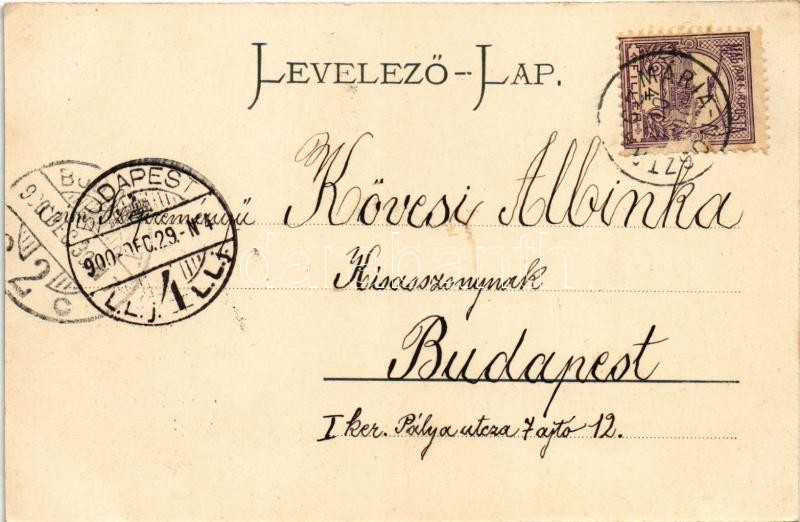 LEVELEZŐ-LAP.
MAGY. KIR. POSTA
FILLÉR
MÁRIA-NOSZTRA
Kövesi Albinka
Kisasszonynak
Budapest
I ker. Pálya utcza 7 ajtó 12.
BUDAPEST
900 DEC. 29. N 4
L.L.j. 4 L.L.j.
BU
2 C
darabanth